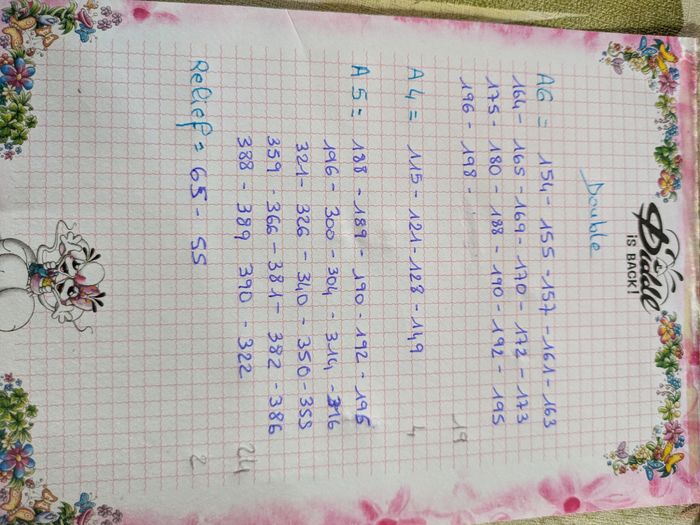 Diddle
IS BACK!
Double
A6 = 154 - 155 - 157 - 161 - 163
164 - 165 - 169 - 170 - 172 - 173
175 - 180 - 188 - 190 - 192 - 195
196 - 198 -
19
A4 = 115 - 121 - 128 - 149
4
A5 = 188 - 189 - 190 - 192 - 195
196 - 300 - 304 - 314 - 316
321 - 326 - 340 - 350 - 358
359 - 366 - 381 - 382 - 386
388 - 389 390 - 322
24
Relief = 65 - 55
2